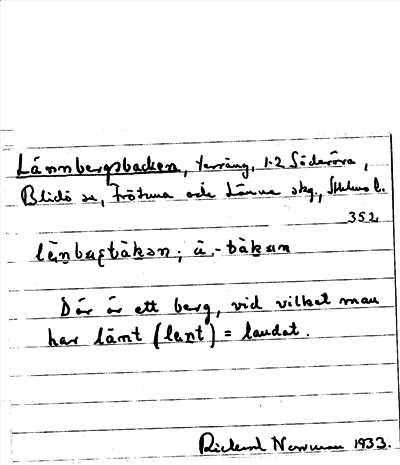 Lännbergsbacken, terräng, 1-2 Söderöra,
Blidö sn, Frötuna och Länna skg., Sthlms l.
352.
lèn̲bærs̲bàkən; ä.-bàkan
Där är ett berg, vid vilket man
har länt (lent) = landat.
Rickard Norrman 1933.